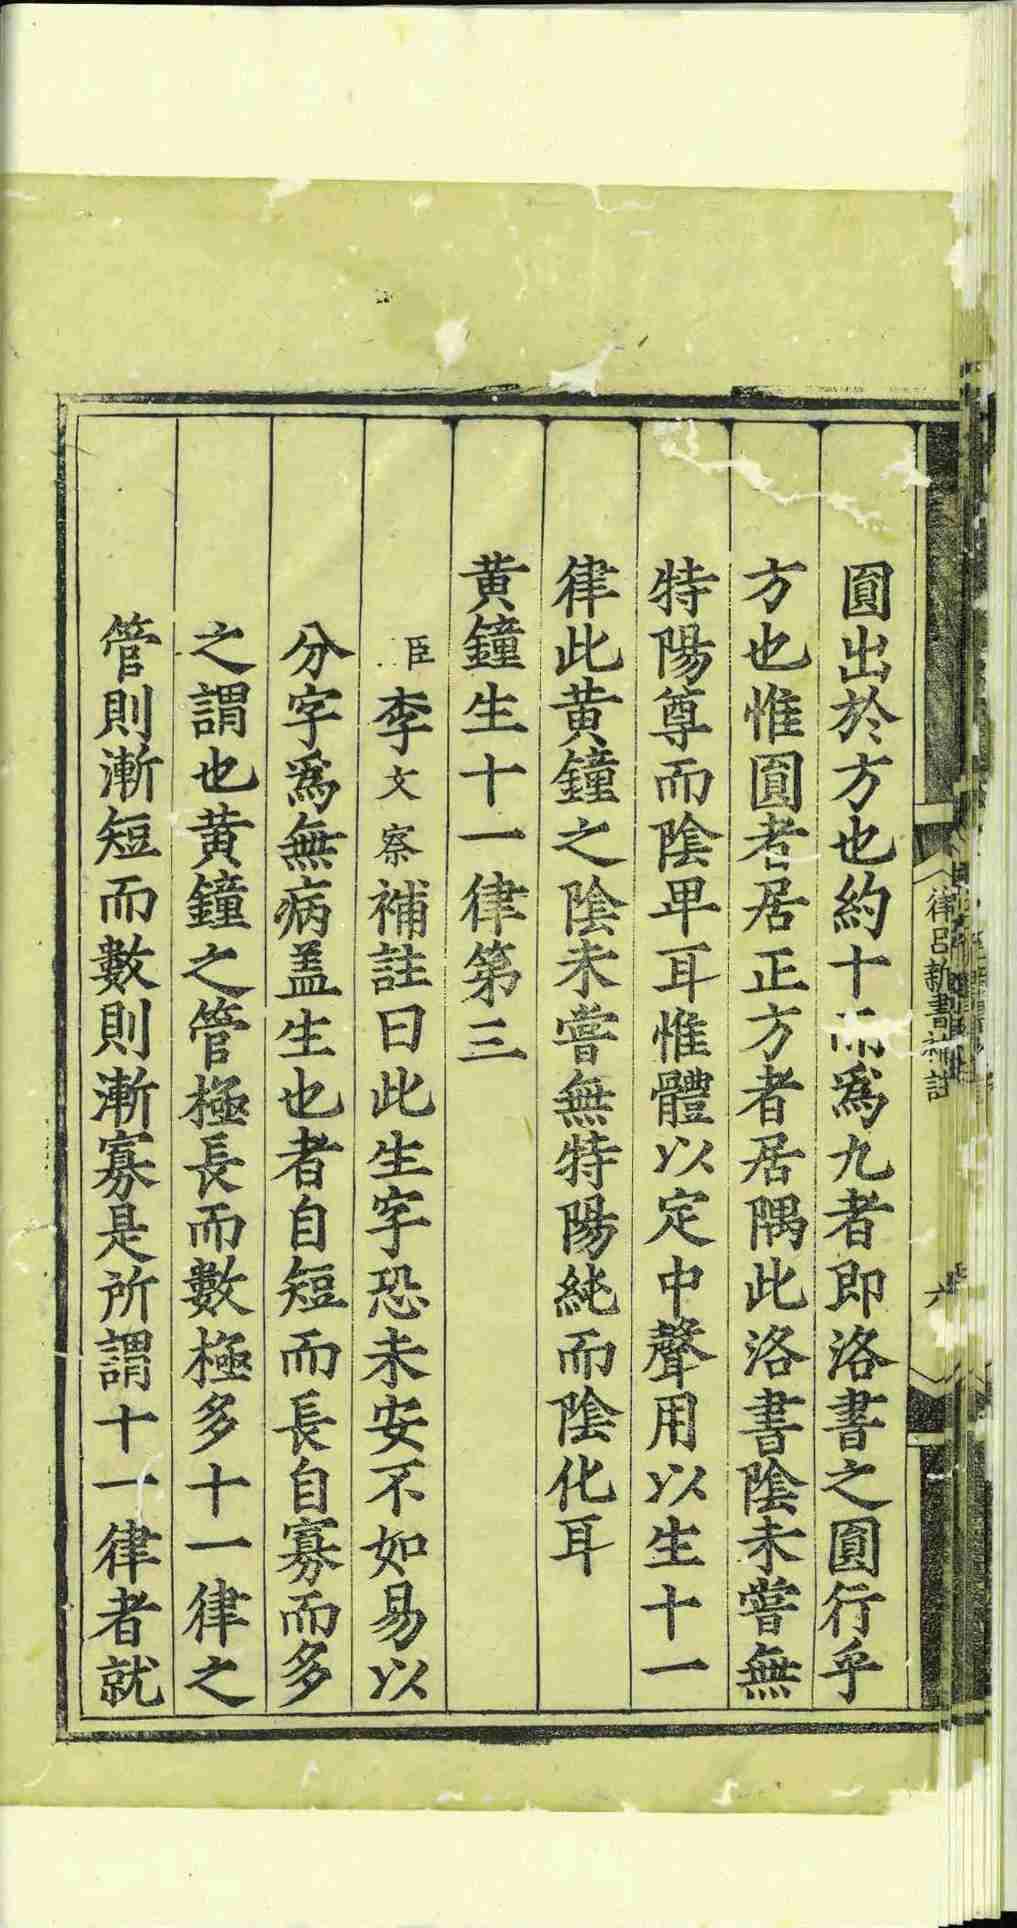 圓出於方也約十而爲九者即洛書之圓行乎
方也惟圓者居正方者居隅此洛書陰未嘗無
特陽尊而陰卑耳惟體以定中聲用以生十一
律此黃鐘之陰未嘗無特陽純而陰化耳
黃鐘生十一律第三
臣李文察補註曰此生字恐未安不如易以
分字爲無病盖生也者自短而長自寡而多
之謂也黃鐘之管極長而數極多十一律之
管則漸短而數則漸寡是所謂十一律者就
律呂新書補註
六